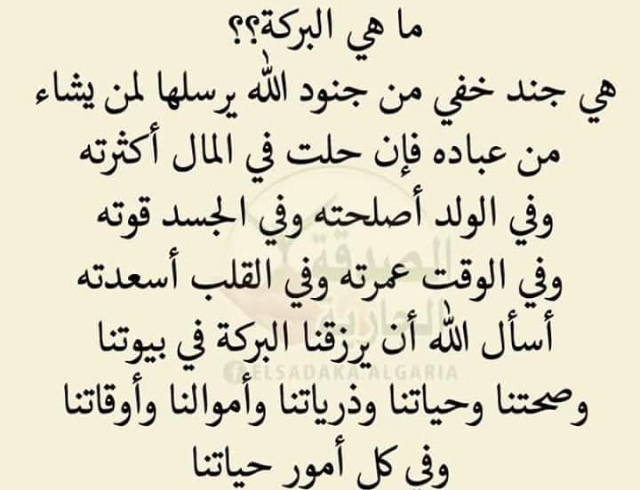 ما هي البركة؟؟
هي جند خفي من جنود الله يرسلها لمن يشاء
من عباده فإن حلت في المال أكثرته
وفي الولد أصلحته وفي الجسد قوته
وفي الوقت عمرته وفي القلب أسعدته
أسأل الله أن يرزقنا البركة في بيوتنا
وصحتنا وحياتنا وذرياتنا وأموالنا وأوقاتنا
وفي كل أمور حياتنا
الصدقة
الجارية
ELSADAKA.ALGARIA